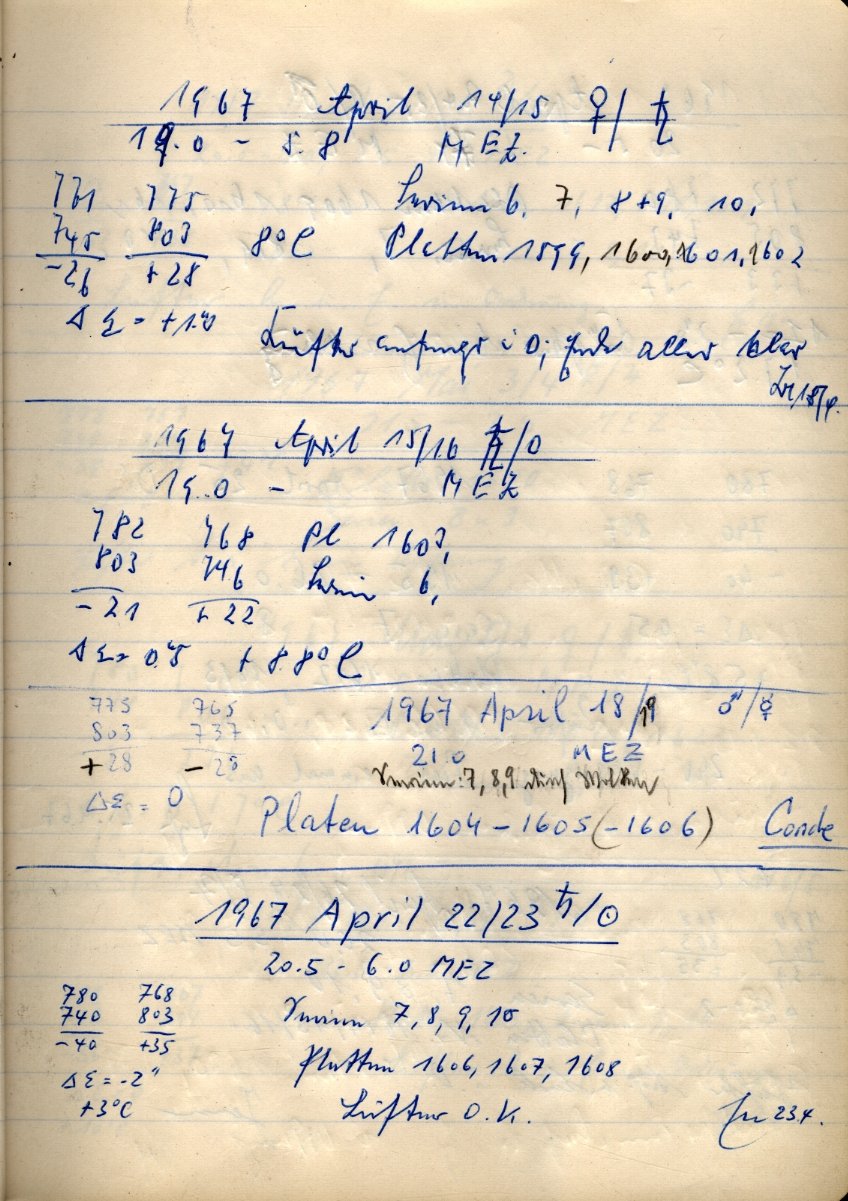 1967 April 14/15 ♀/♄
19.0 - 5.8 MEZ.
771 775 Serien 6, 7, 8+9, 10,
745 803 8°C Platten 1599, 1600, 1601, 1602
-26 +28
ΔΣ = +1.″0
Lüfter anfangs i O; alles klar
1967 April 15/16 ♄/⊙
19.0 - MEZ
782 768 Pl 1603,
803 746 Serie 6,
-21 +22
ΔΣ = 0.″5 +8.8°C
775 765 1967 April 18/19 ♂/☿
803 737 21.0 MEZ
+28 -28 Serien: 7, 8, 9 durch Wolken
ΔΣ = 0
Platen 1604-1605(-1606) Conde
1967 April 22/23 ♄/⊙
20.5 - 6.0 MEZ
780 768 Serien 7, 8, 9, 10
740 803
-40 +35 Platten 1606, 1607, 1608
ΔΣ = -2″
+3°C Lüfter O.K. 234.